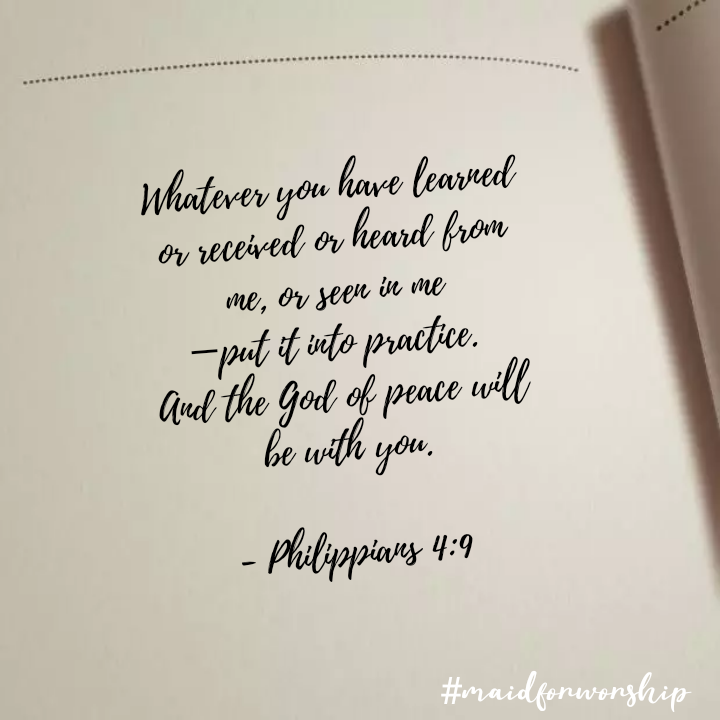 Whatever you have learned
or received or heard from
me, or seen in me
—put it into practice.
And the God of peace will
be with you.
- Philippians 4:9
#maidforworship